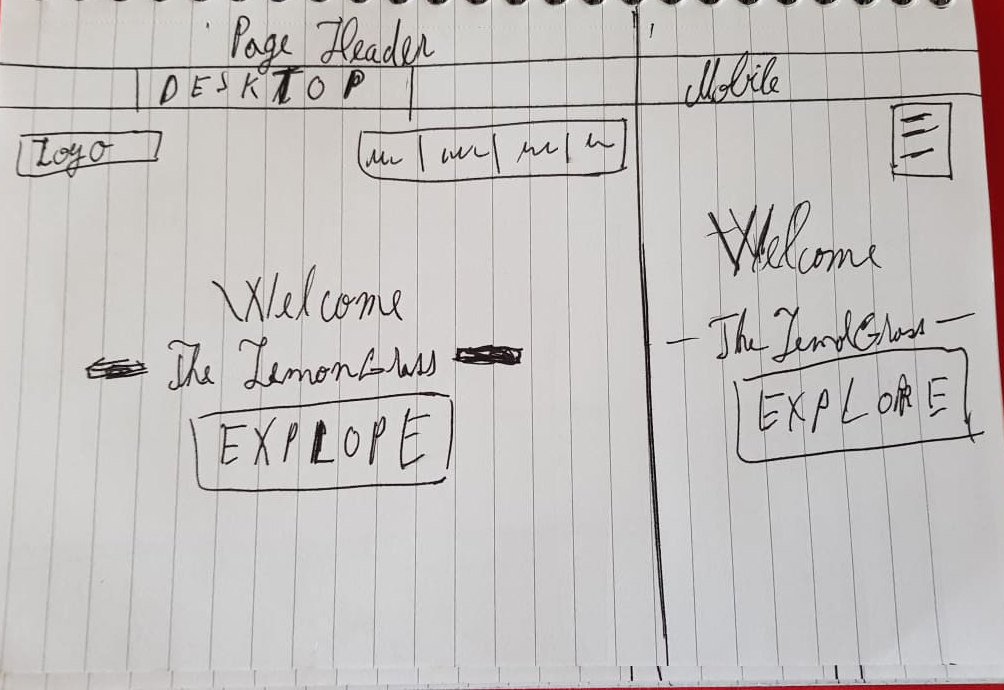 Page Header
DESKTOP
Logo
Welcome
The LemonGrass
EXPLOPE
Mobile
Welcome
— The LemdGrass —
EXPLORE